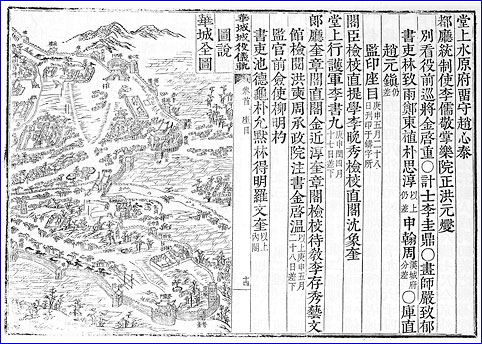 堂上水原府留守趙心泰
都廳統制使李儒敬掌樂院正洪元燮
別看役前巡將金啓重○計士李圭鼎○畫師嚴致郁
書吏林致雨鄭東植朴思淳以上仍差申翰周漢城府分差○庫直
趙元鎭仍差
監印座目庚申五月二十八日列印于鑄字所
閣臣檢校直提學李晩秀檢校直閣沈象奎
堂上行護軍李書九庚申閏四月十七日差下
郎廳奎章閣直閣金近淳奎章閣檢校待敎李存秀藝文
館檢閱洪奭周承政院注書金啓溫以上庚申五月二十八日差下
監官前僉使柳明杓
書吏池德龜朴允黙林得明羅文奎以上內閣
華城城役儀軌 卷首 座目 十四
圖說
華城全圖